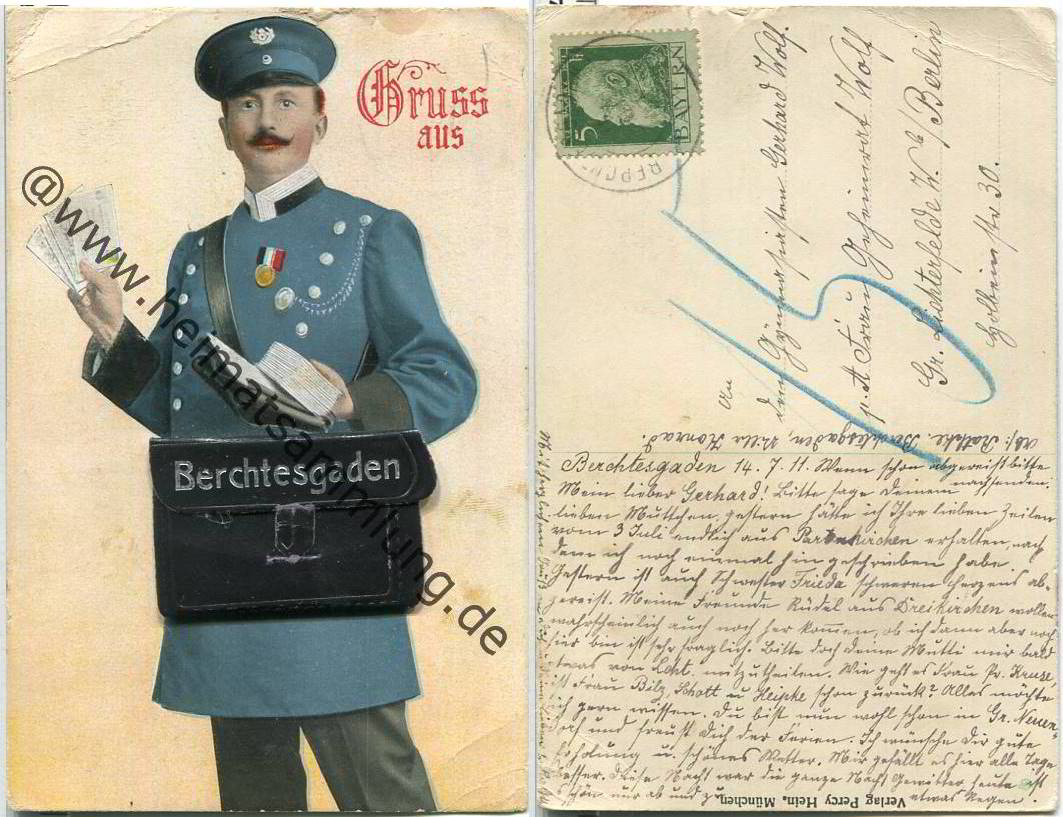 Gruss
aus
Berchtesgaden
@www.heimatsammlung.de
5
BAYERN
An
den Gymnasiasten Gerhard Wolf.
p. A Frau Geheimrat Wolf
Gr. Lichterfelde W. b/Berlin
Holbeinstr 30.
15
Abs: Rathke. Berchtesgaden, Villa Konrad.
Berchtesgaden 14. 7. 11. Wenn schon abgereist bitte
nachsenden.
Mein lieber Gerhard! Bitte sage Deinem
lieben Muttchen, gestern hätte ich Ihre lieben Zeilen
vom 3 Juli endlich aus Partenkirchen erhalten, nach
dem ich noch einmal hingeschrieben habe
Gestern ist auch Schwester Frieda schweren Herzens ab-
gereist. Meine Freunde Rüdel aus Dreikirchen wollen
wahrscheinlich auch noch her kommen, ob ich dann aber noch
hier bin ist sehr fraglich. Bitte doch Deine Mutti mir bald
etwas von Licht. mitzutheilen. Wie geht es Frau Pr. Kruse,
ist Frau Bilz, Schott u Heipke schon zurück? Alles möchte
ich gern wissen. Du bist nun wohl schon in Gr. Neuen-
dorf und freust Dich der Ferien. Ich wünsche Dir gute
Erholung u. schönes Wetter. Mir gefällt es hier alle Tage
besser. Diese Nacht war die ganze Nacht Gewitter heute ist
schön nur ab und zu etwas Regen.
Verlag Percy Hein, München.